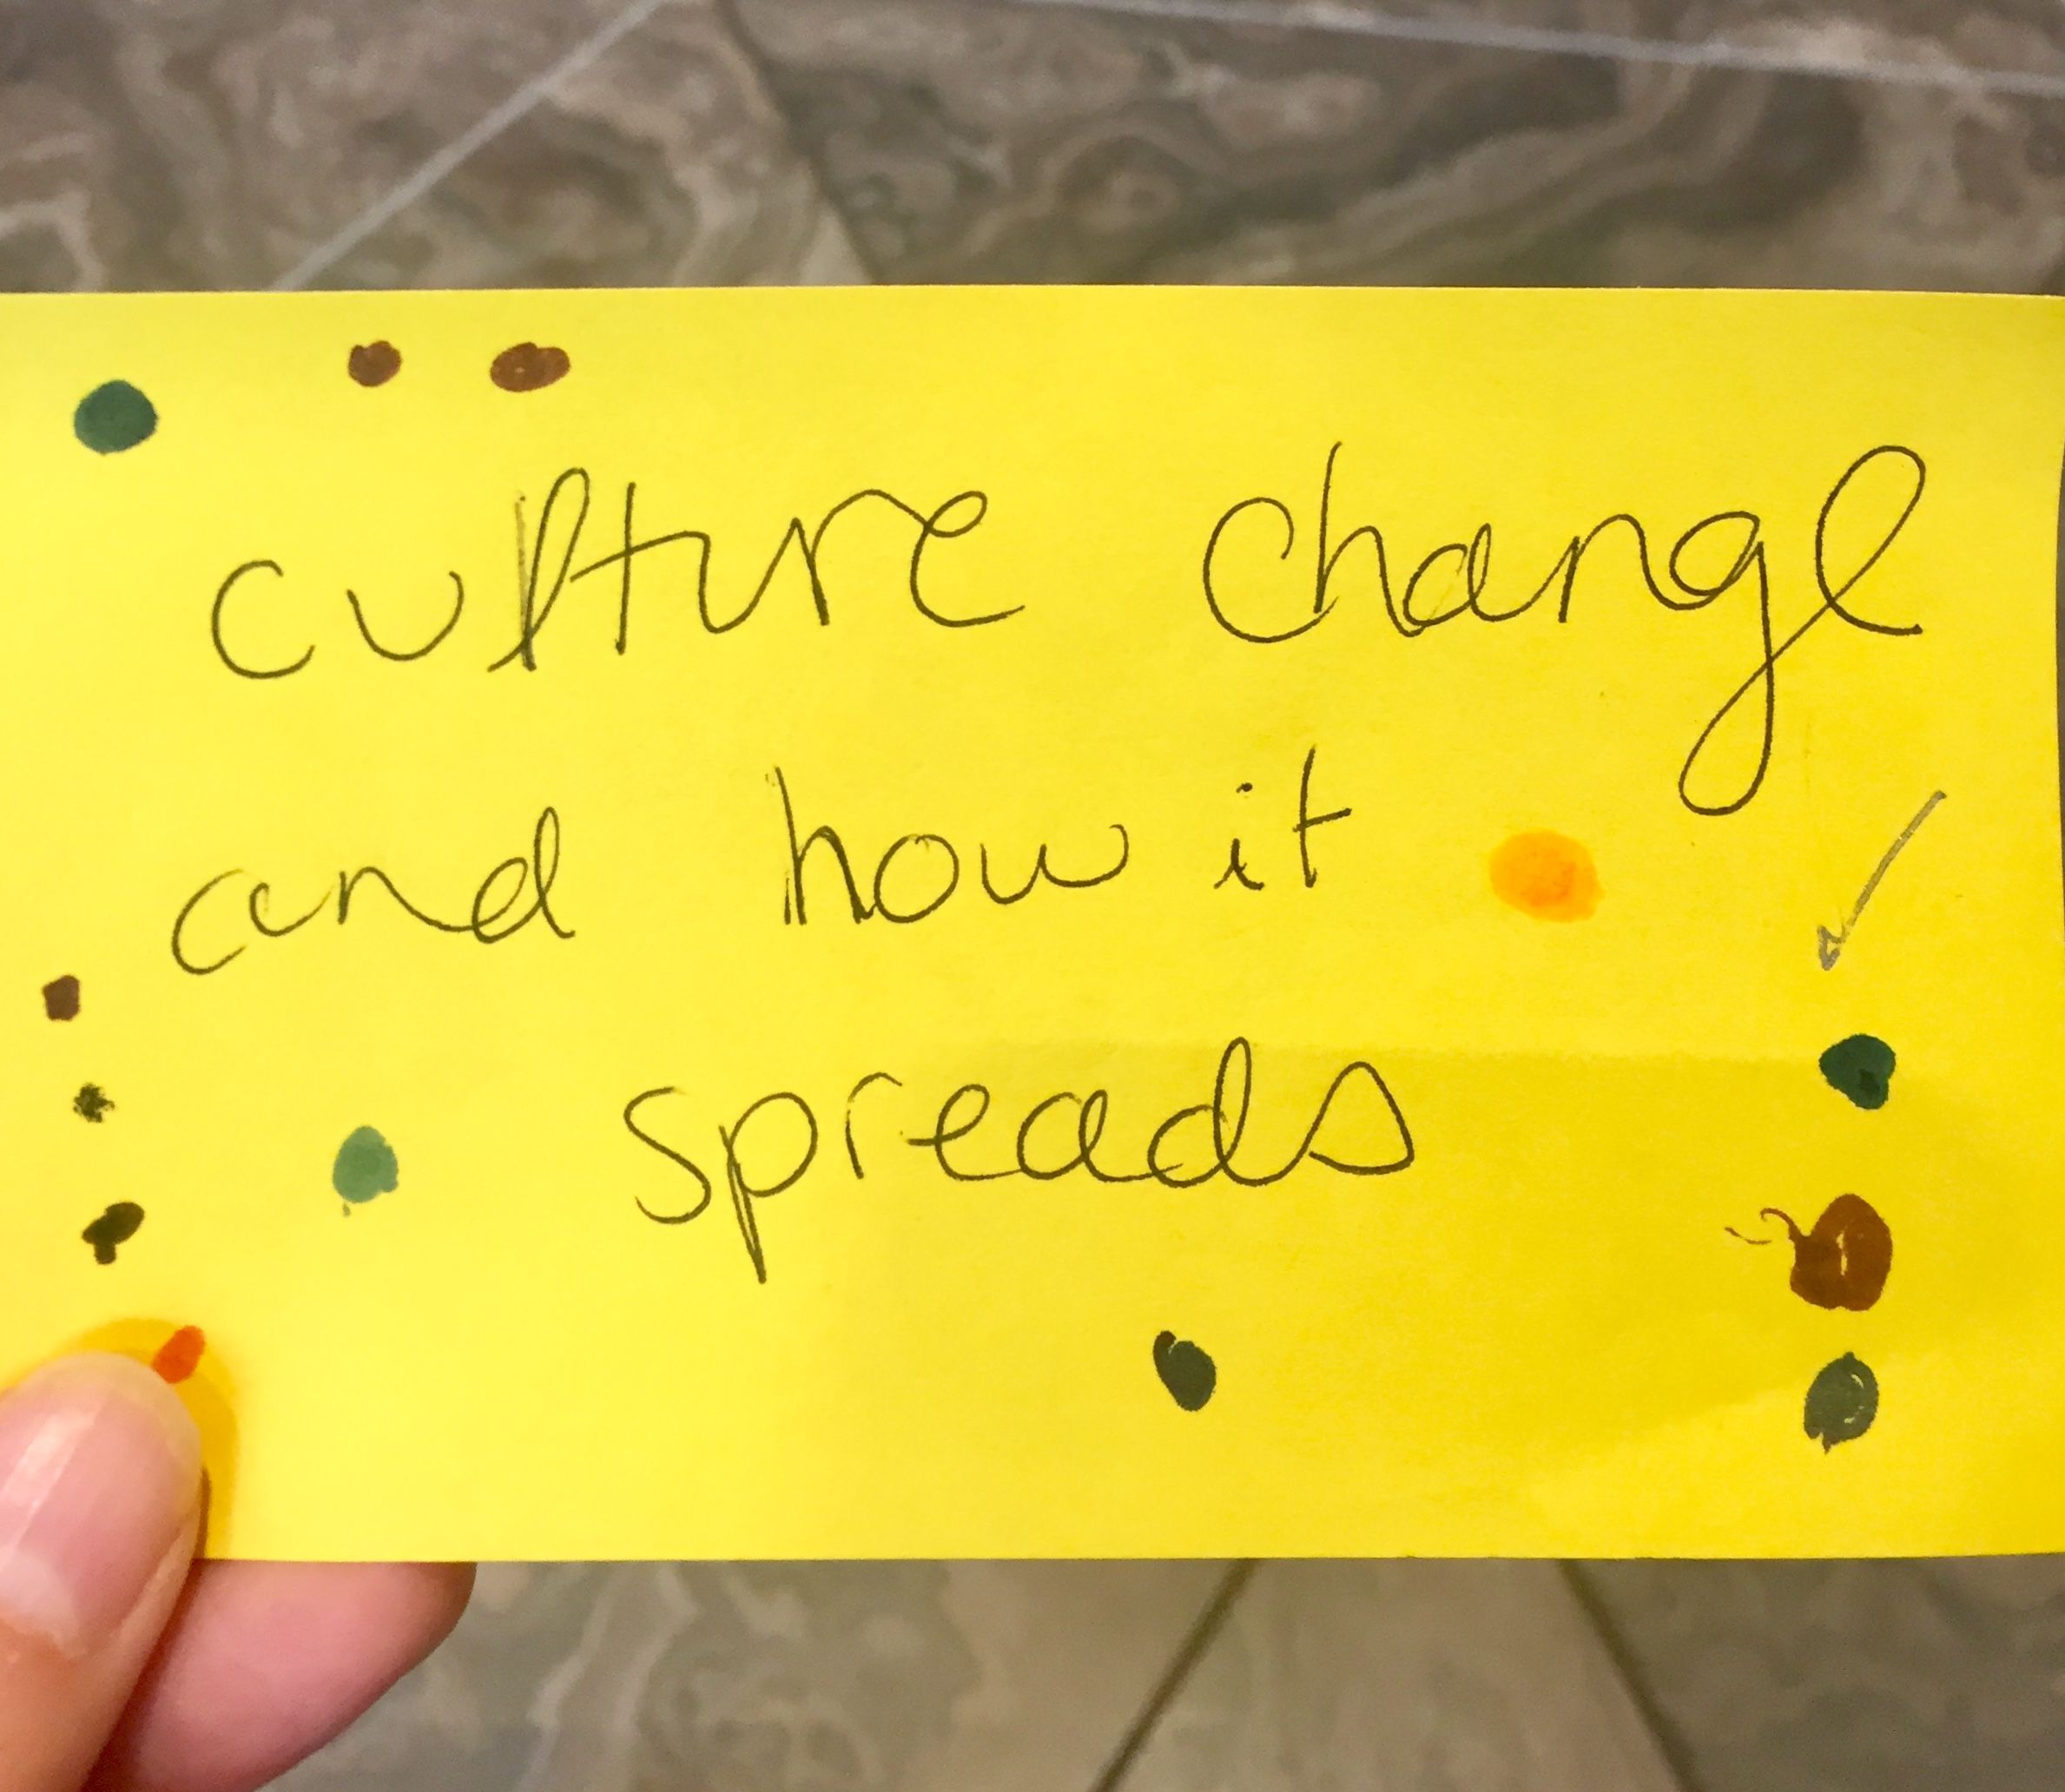 culture change
and how it
spreads